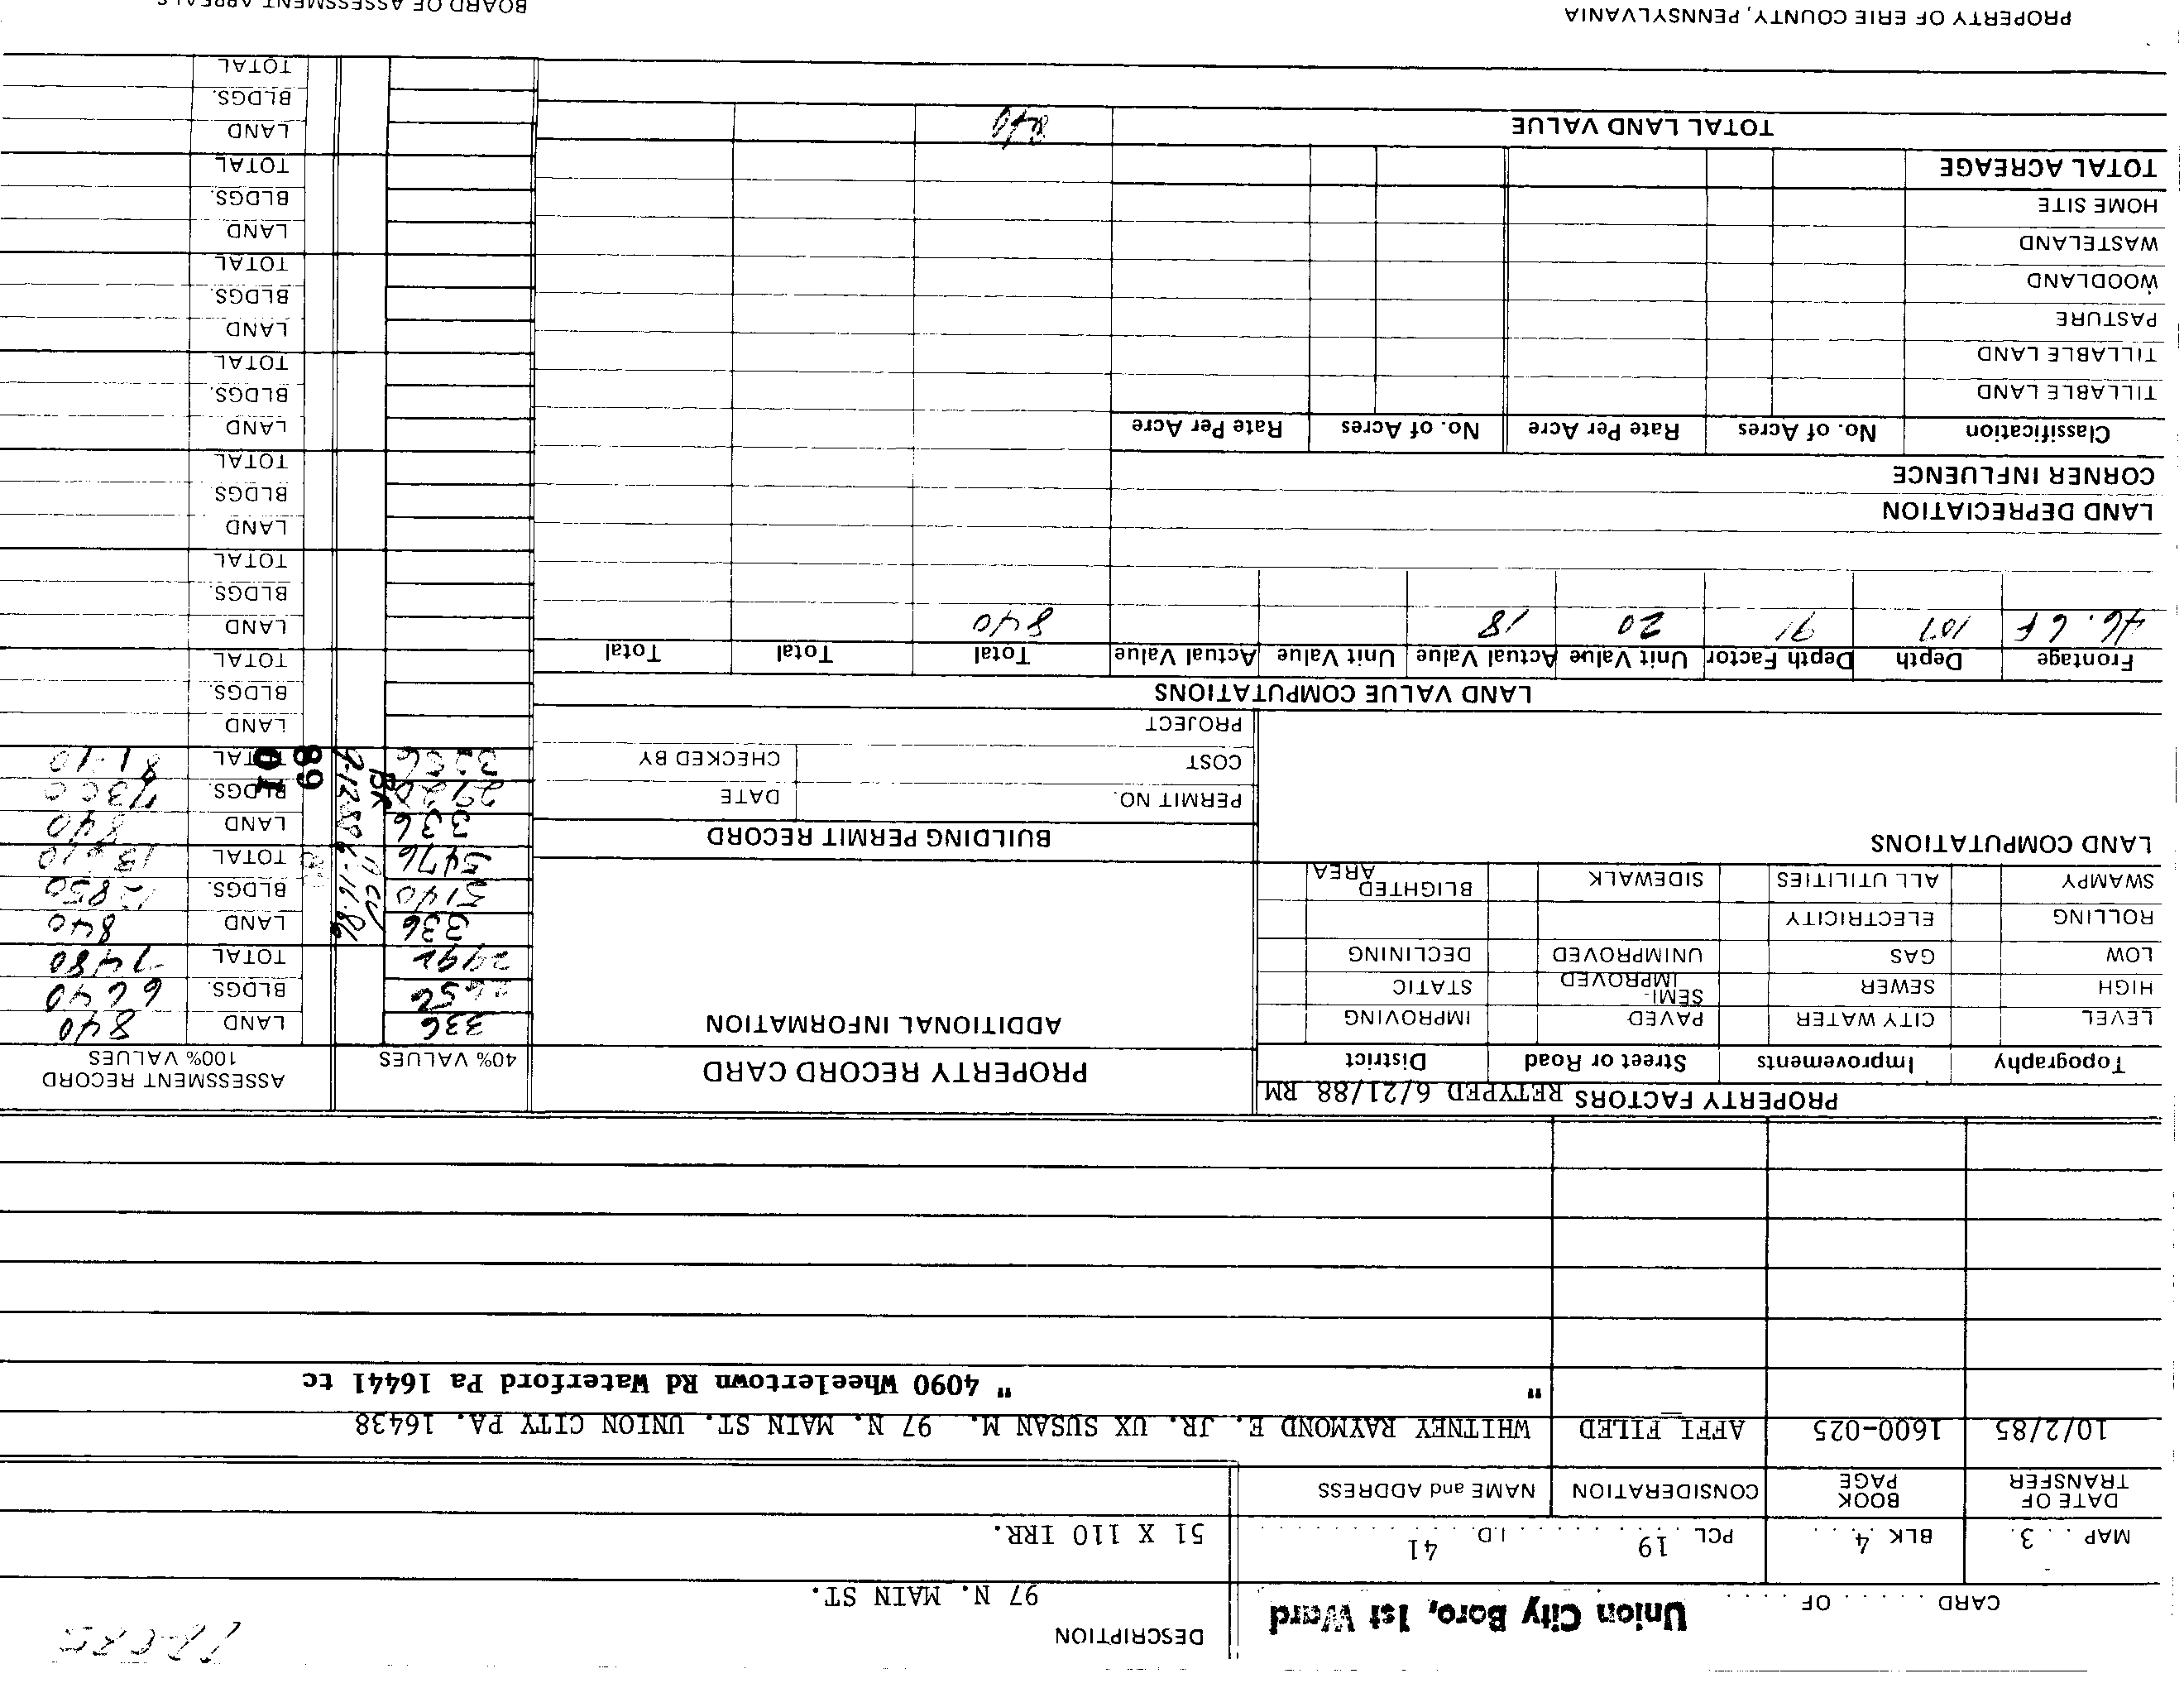 CARD ..... OF .....
Union City Boro, 1st Ward
DESCRIPTION
97 N. MAIN ST.
MAP 3 BLK 4 PCL 19 I.D. 41
51 X 110 IRR.
DATE OF TRANSFER BOOK PAGE CONSIDERATION NAME and ADDRESS
10/2/85 1600-025 AFFI FILED WHITNEY RAYMOND E. JR. UX SUSAN M. 97 N. MAIN ST. UNION CITY PA. 16438
" " 4090 Wheelertown Rd Waterford Pa 16441 tc
PROPERTY FACTORS RETYPED 6/21/88 RM
Topography Improvements Street or Road District
LEVEL CITY WATER PAVED IMPROVING
HIGH SEWER SEMI-IMPROVED STATIC
LOW GAS UNIMPROVED DECLINING
ROLLING ELECTRICITY
SWAMPY ALL UTILITIES SIDEWALK BLIGHTED AREA
LAND COMPUTATIONS
PROPERTY RECORD CARD
ADDITIONAL INFORMATION
BUILDING PERMIT RECORD
PERMIT NO. DATE
COST CHECKED BY
PROJECT
40% VALUES ASSESSMENT RECORD 100% VALUES
336 LAND 840
2656 BLDGS. 6640
2992 TOTAL 7480
336 LAND 840
5140 BLDGS. 12850
5476 TOTAL
336 LAND 840
BLDGS. 7300
TOTAL
89 01
LAND
BLDGS.
TOTAL
LAND
BLDGS.
TOTAL
LAND
BLDGS
TOTAL
LAND
BLDGS.
TOTAL
LAND
BLDGS.
TOTAL
LAND
BLDGS.
TOTAL
LAND
BLDGS.
TOTAL
LAND VALUE COMPUTATIONS
Frontage Depth Depth Factor Unit Value Actual Value Unit Value Actual Value Total Total Total
46.67 107 91 20 18 840
LAND DEPRECIATION
CORNER INFLUENCE
Classification No. of Acres Rate Per Acre No. of Acres Rate Per Acre
TILLABLE LAND
TILLABLE LAND
PASTURE
WOODLAND
WASTELAND
HOME SITE
TOTAL ACREAGE
TOTAL LAND VALUE 840
PROPERTY OF ERIE COUNTY, PENNSYLVANIA
BOARD OF ASSESSMENT APPEALS